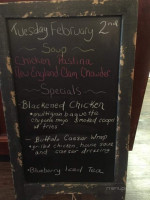 Tuesday February 2nd
Soup
Chicken
New England Clam Chowder
Specials
Blackened Chicken
baguette
chipotle mayo smoked
Buffalo Caesar Wrap
grilled chicken, house sauce
and caesar dressing
Blueberry Iced Tea